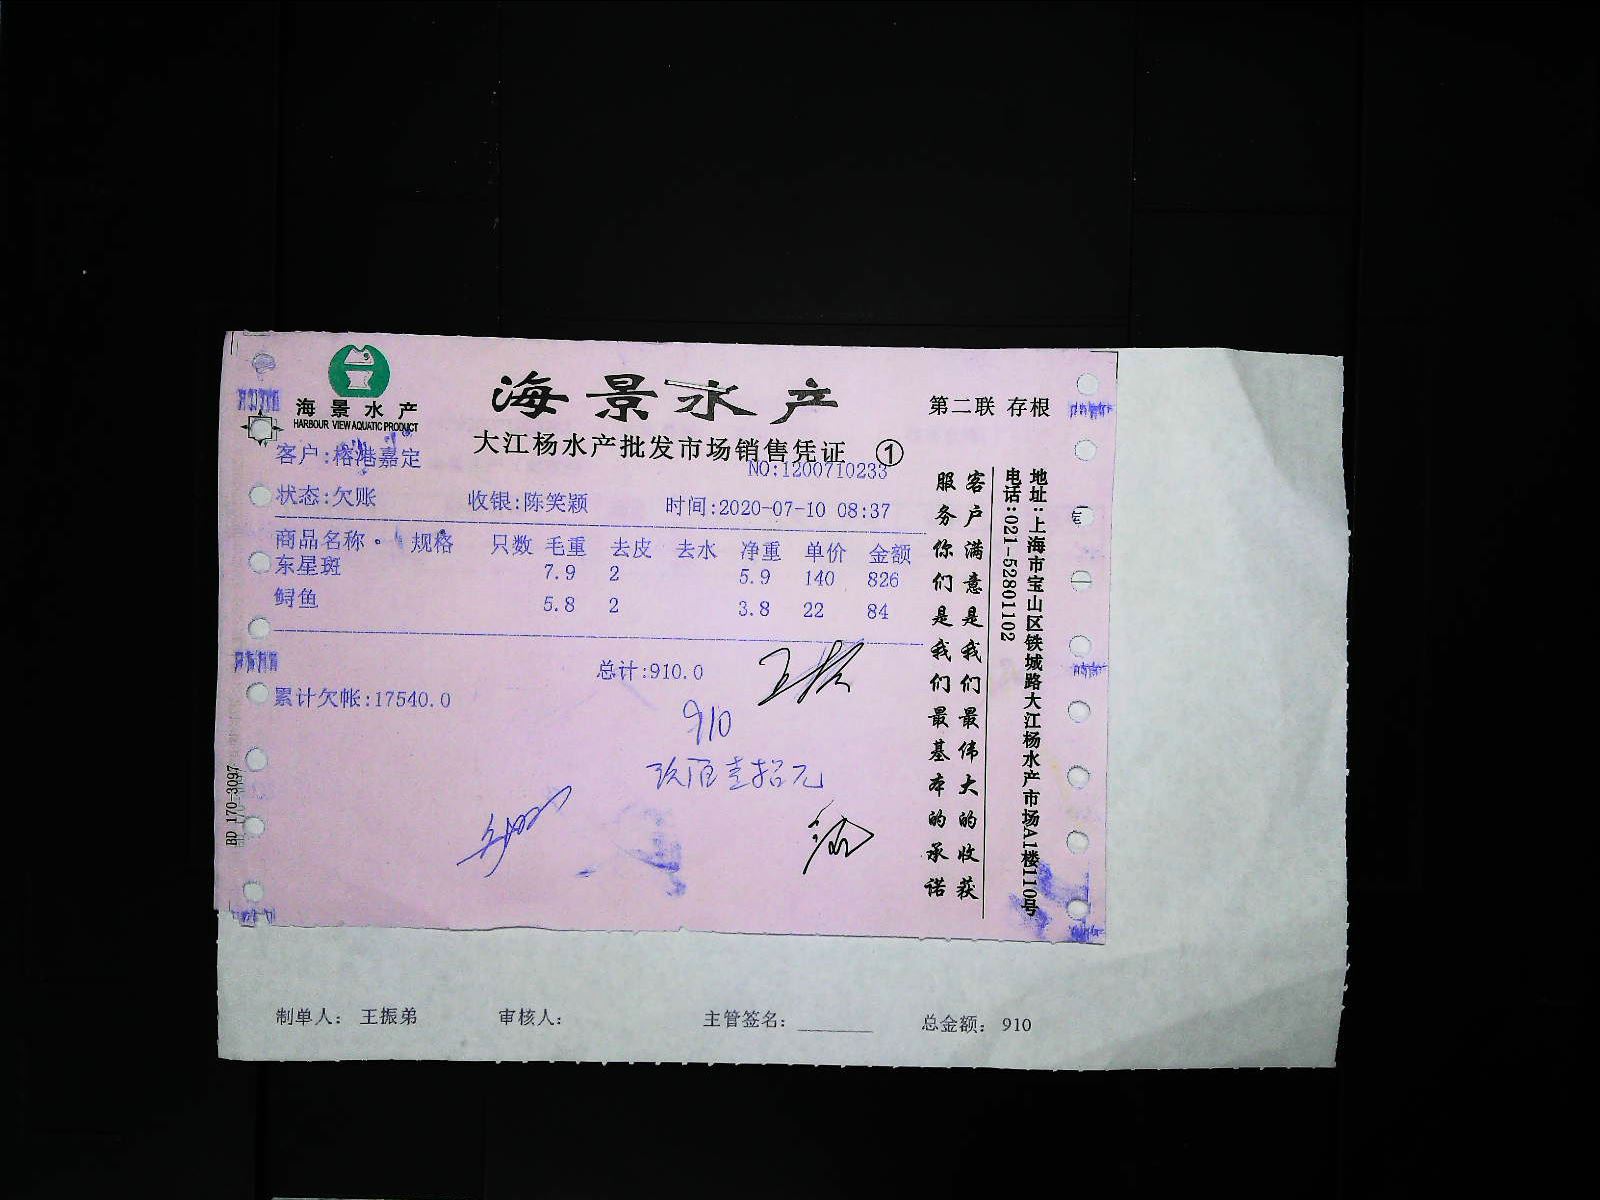 海景水产
HARBOUR VIEW AQUATIC PRODUCT
海景水产
第二联 存根
大江杨水产批发市场销售凭证 ①
客户:榕港嘉定
NO:1200710233
状态:欠账 收银:陈笑颖 时间:2020-07-10 08:37
商品名称 规格 只数 毛重 去皮 去水 净重 单价 金额
东星斑 7.9 2 5.9 140 826
鲟鱼 5.8 2 3.8 22 84
总计:910.0
累计欠帐:17540.0
910
玖佰壹拾元
客户满意是我们最伟大的收获
服务你们是我们最基本的承诺
地址:上海市宝山区铁城路大江杨水产市场A1楼110号
电话:021-52801102
BD 170-3097
制单人: 王振弟 审核人: 主管签名: 总金额: 910